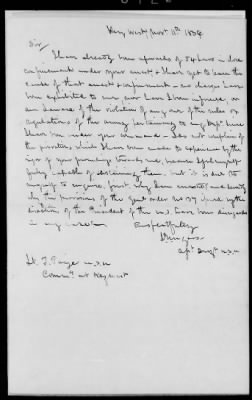 Key West, Novr 11th 1834
Sir,
I have already been upwards of 54 hours in close
confinement under your arrest & I have yet to learn the
cause of that arrest & confinement - no charges have
been exhibited to me, nor have I been informed, or
am I aware of the violation of any one of the rules or
regulations of the army for which
I have been under your command. I do not complain
of the privations which I have been made to experience by the
rigor of your proceedings towards me, because I feel myself
fully capable of sustaining them, but it is due to
myself to enquire, first, why I am arrested and secondly
why the provisions of the Genl order No 39 issued by the
direction of the President of the U.S. have been disregarded
in my
Respectfully
Asst Surgn U.S.A.
Lt
Commg at Key West